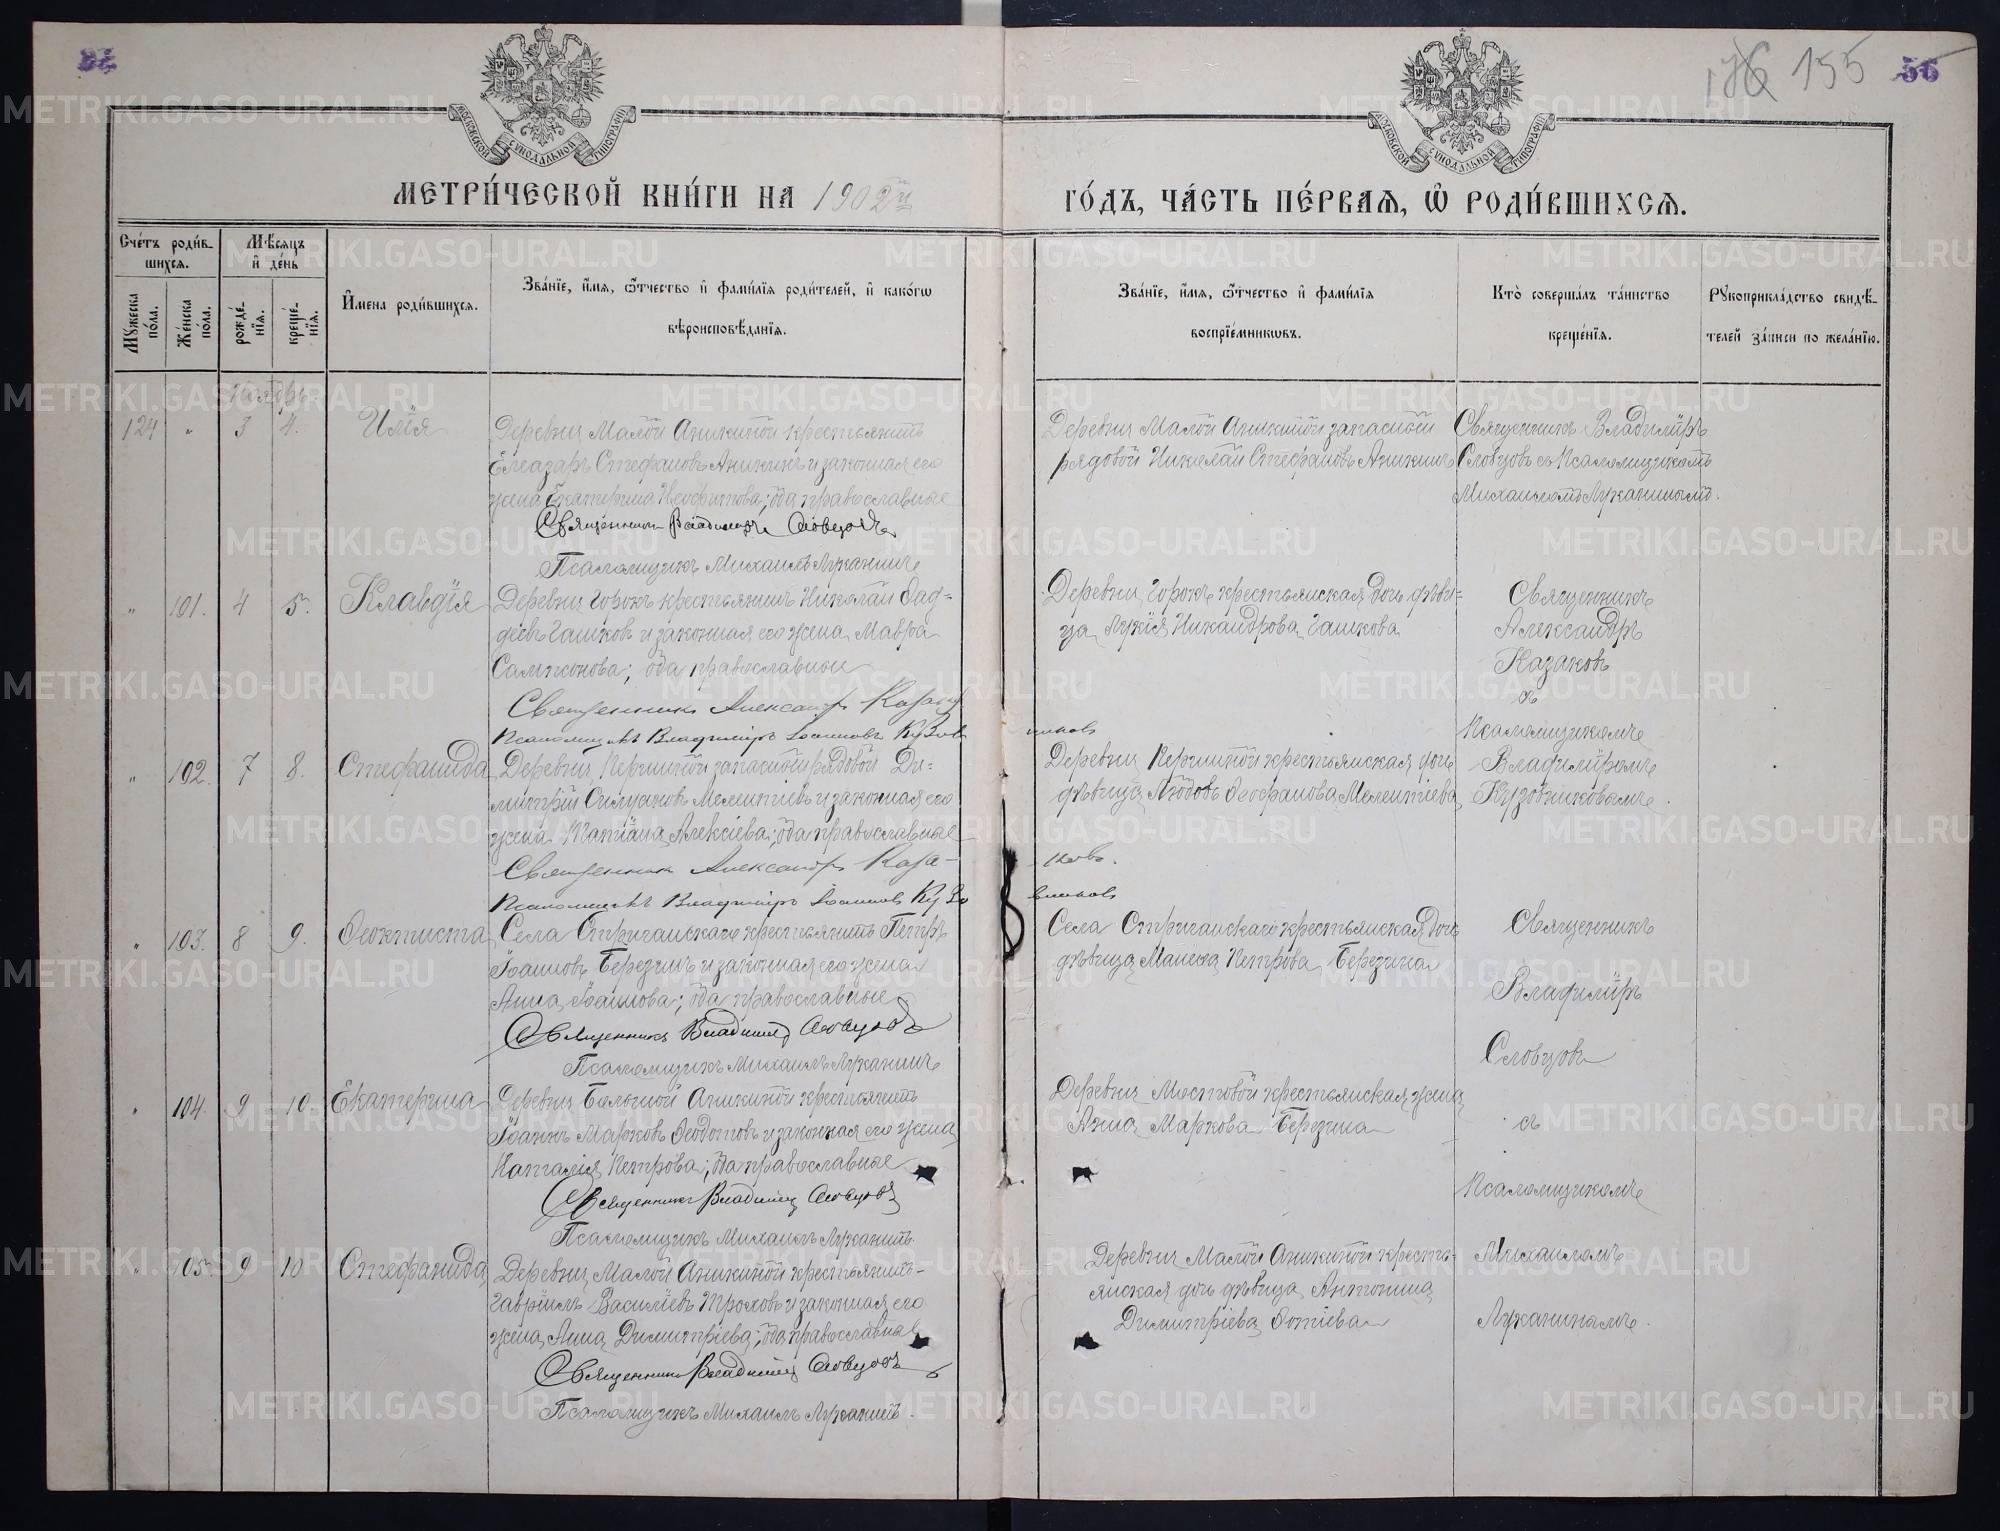 176 155 56
МОСКОВСКОЙ СУНОДАЛЬНОЙ ТИПОГРАФІИ
МОСКОВСКОЙ СУНОДАЛЬНОЙ ТИПОГРАФІИ
МЕТРИ́ЧЕСКОЙ КНИ́ГИ НА 1902й ГО́ДЪ, ЧА́СТЬ ПЕ́РВАЯ, Ѡ҆ РОДИ́ВШИХСЯ.
Сче́тъ роди́в-
шихся.
Мꙋжеска по́ла.
Же́нска по́ла.
Мѣ́сяцъ
и҆ де́нь
рожде́-
нїя.
креще́-
нїя.
И҆мена роди́вшихся.
Зва́нїе, и҆́мя, ѻ҆́тчество и҆ фами́лїя роди́телей, и҆ како́гѡ
вѣроисповѣ́данїя.
Зва́нїе, и҆́мя, ѻ҆́тчество и҆ фами́лїя
воспрїе́мниковъ.
Кто̀ соверша́лъ та́инство
креще́нїя.
Рꙋкоприкла́дство свидѣ́-
телей за́писи по жела́нїю.
Ноябрь.
124 " 3 4. Илія
Деревни Малой Аникиной крестьянинъ
Елеазаръ Стефановъ Аникинъ и законная его
жена Екатерина Неофитова; оба православные
Священникъ Владимиръ Словцовъ
Псаломщикъ Михаилъ Луканинъ
Деревни Малой Аникиной запасной
рядовой Николай Стефановъ Аникинъ
Священникъ Владиміръ
Словцовъ съ Псаломщикомъ
Михаиломъ Луканинымъ.
" 101. 4 5. Клавдія
Деревни Горокъ крестьянинъ Николай Фад-
дѣевъ Гашковъ и законная его жена Мавра
Сампсонова; оба православные
Священникъ Александръ Казаковъ
Псаломщикъ Владиміръ Іоанновъ Кузов
никовъ
Деревни Горокъ крестьянская дочь дѣви-
ца Лукія Никандрова Гашкова
Священникъ
Александръ
Казаковъ
съ
Псаломщикомъ
Владиміромъ
Кузовниковымъ.
" 102. 7 8. Стефанида
Деревни Першиной запасной рядовой Ди-
митрій Силуановъ Мелентіевъ и законная его
жена Татіана Алексіева; оба православные
Священникъ Александръ Каза-
ковъ.
Псаломщикъ Владиміръ Іоанновъ Кузо
вниковъ
Деревни Першиной крестьянская дочь
дѣвица Любовь Феофанова Мелентіева
" 103. 8 9. Феоктиста
Села Стриганскаго крестьянинъ Петръ
Іоанновъ Березинъ и законная его жена
Анна Іоаннова; оба православные
Священникъ Владимиръ Словцовъ
Псаломщикъ Михаилъ Луканинъ
Села Стриганскаго крестьянская дочь
дѣвица Манефа Петрова Березина
Священникъ
Владиміръ
Словцовъ
съ
Псаломщикомъ
Михаиломъ
Луканинымъ.
" 104. 9 10. Екатерина
Деревни Большой Аникиной крестьянинъ
Іоаннъ Марковъ Феодотовъ и законная его жена
Наталія Петрова; оба православные
Священникъ Владимиръ Словцовъ
Псаломщикъ Михаилъ Луканинъ
Деревни Мостовой крестьянская жена
Анна Маркова Березина
" 105. 9 10 Стефанида
Деревни Малой Аникиной крестьянинъ
Гавріилъ Василіевъ Трюховъ и законная его
жена Анна Димитріева; оба православные
Священникъ Владимиръ Словцовъ
Псаломщикъ Михаилъ Луканинъ.
Деревни Малой Аникиной кресть-
янская дочь дѣвица Антонина
Димитріева Фотіева
METRIKI.GASO-URAL.RU